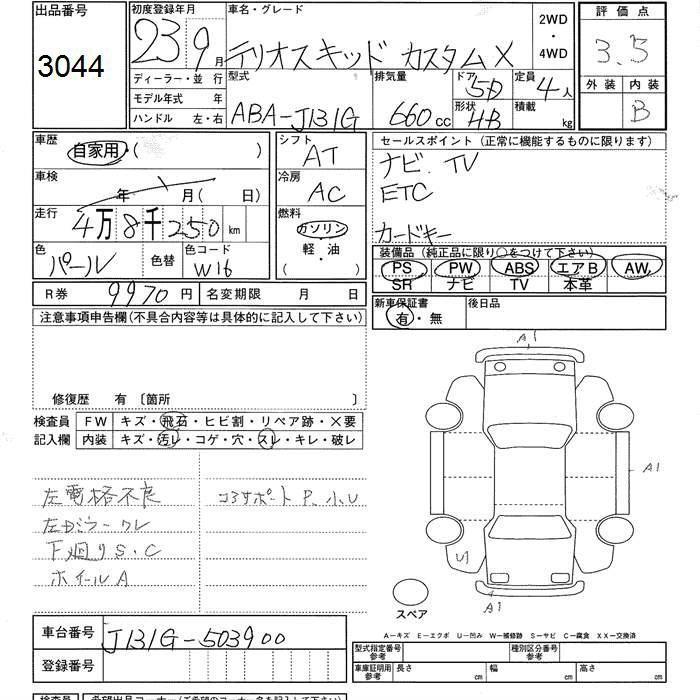 出品番号
3044
初度登録年月
23 9 月
車名・グレード
テリオスキッド カスタムX
2WD
・
4WD
評価点
3.5
外装 内装
B
ディーラー・並行
モデル年式 年
ハンドル 左・右
型式
ABA-J131G
排気量
660 cc
ドア
5D
形状
HB
定員
4人
積載
kg
車歴
自家用 ( )
車検
年 月( 日)
走行
4万8千250 km
色
パール
色替
色コード
W16
シフト
AT
冷房
AC
燃料
ガソリン
軽・油
( )
セールスポイント (正常に機能するものに限ります)
ナビ. TV
ETC
カードキー
装備品 (純正品に限り○をつけて下さい)
PS PW ABS エアB AW
SR ナビ TV 本革
R券 9970 円 名変期限 月 日
新車保証書
有・無
後日品
注意事項申告欄(不具合内容等は具体的に記入して下さい)
修復歴 有 〔箇所 〕
検査員
記入欄
FW キズ・飛石・ヒビ割・リペア跡・×要
内装 キズ・汚レ・コゲ・穴・スレ・キレ・破レ
左電格不良
左ドミラーワレ
下廻りS.C
ホイールA
コアサポート P.小U
A1
A1
U1
A1
スペア
A―キズ E―エクボ U―凹み W―補修跡 S―サビ C―腐食 XX―交換済
車台番号 J131G-503900
登録番号
型式指定番号
参考
種別区分番号
参考
車庫証明用
参考
長さ cm 幅 cm 高さ cm
検査員 希望出品コーナー(ご希望のコーナー名を記入して下さい)